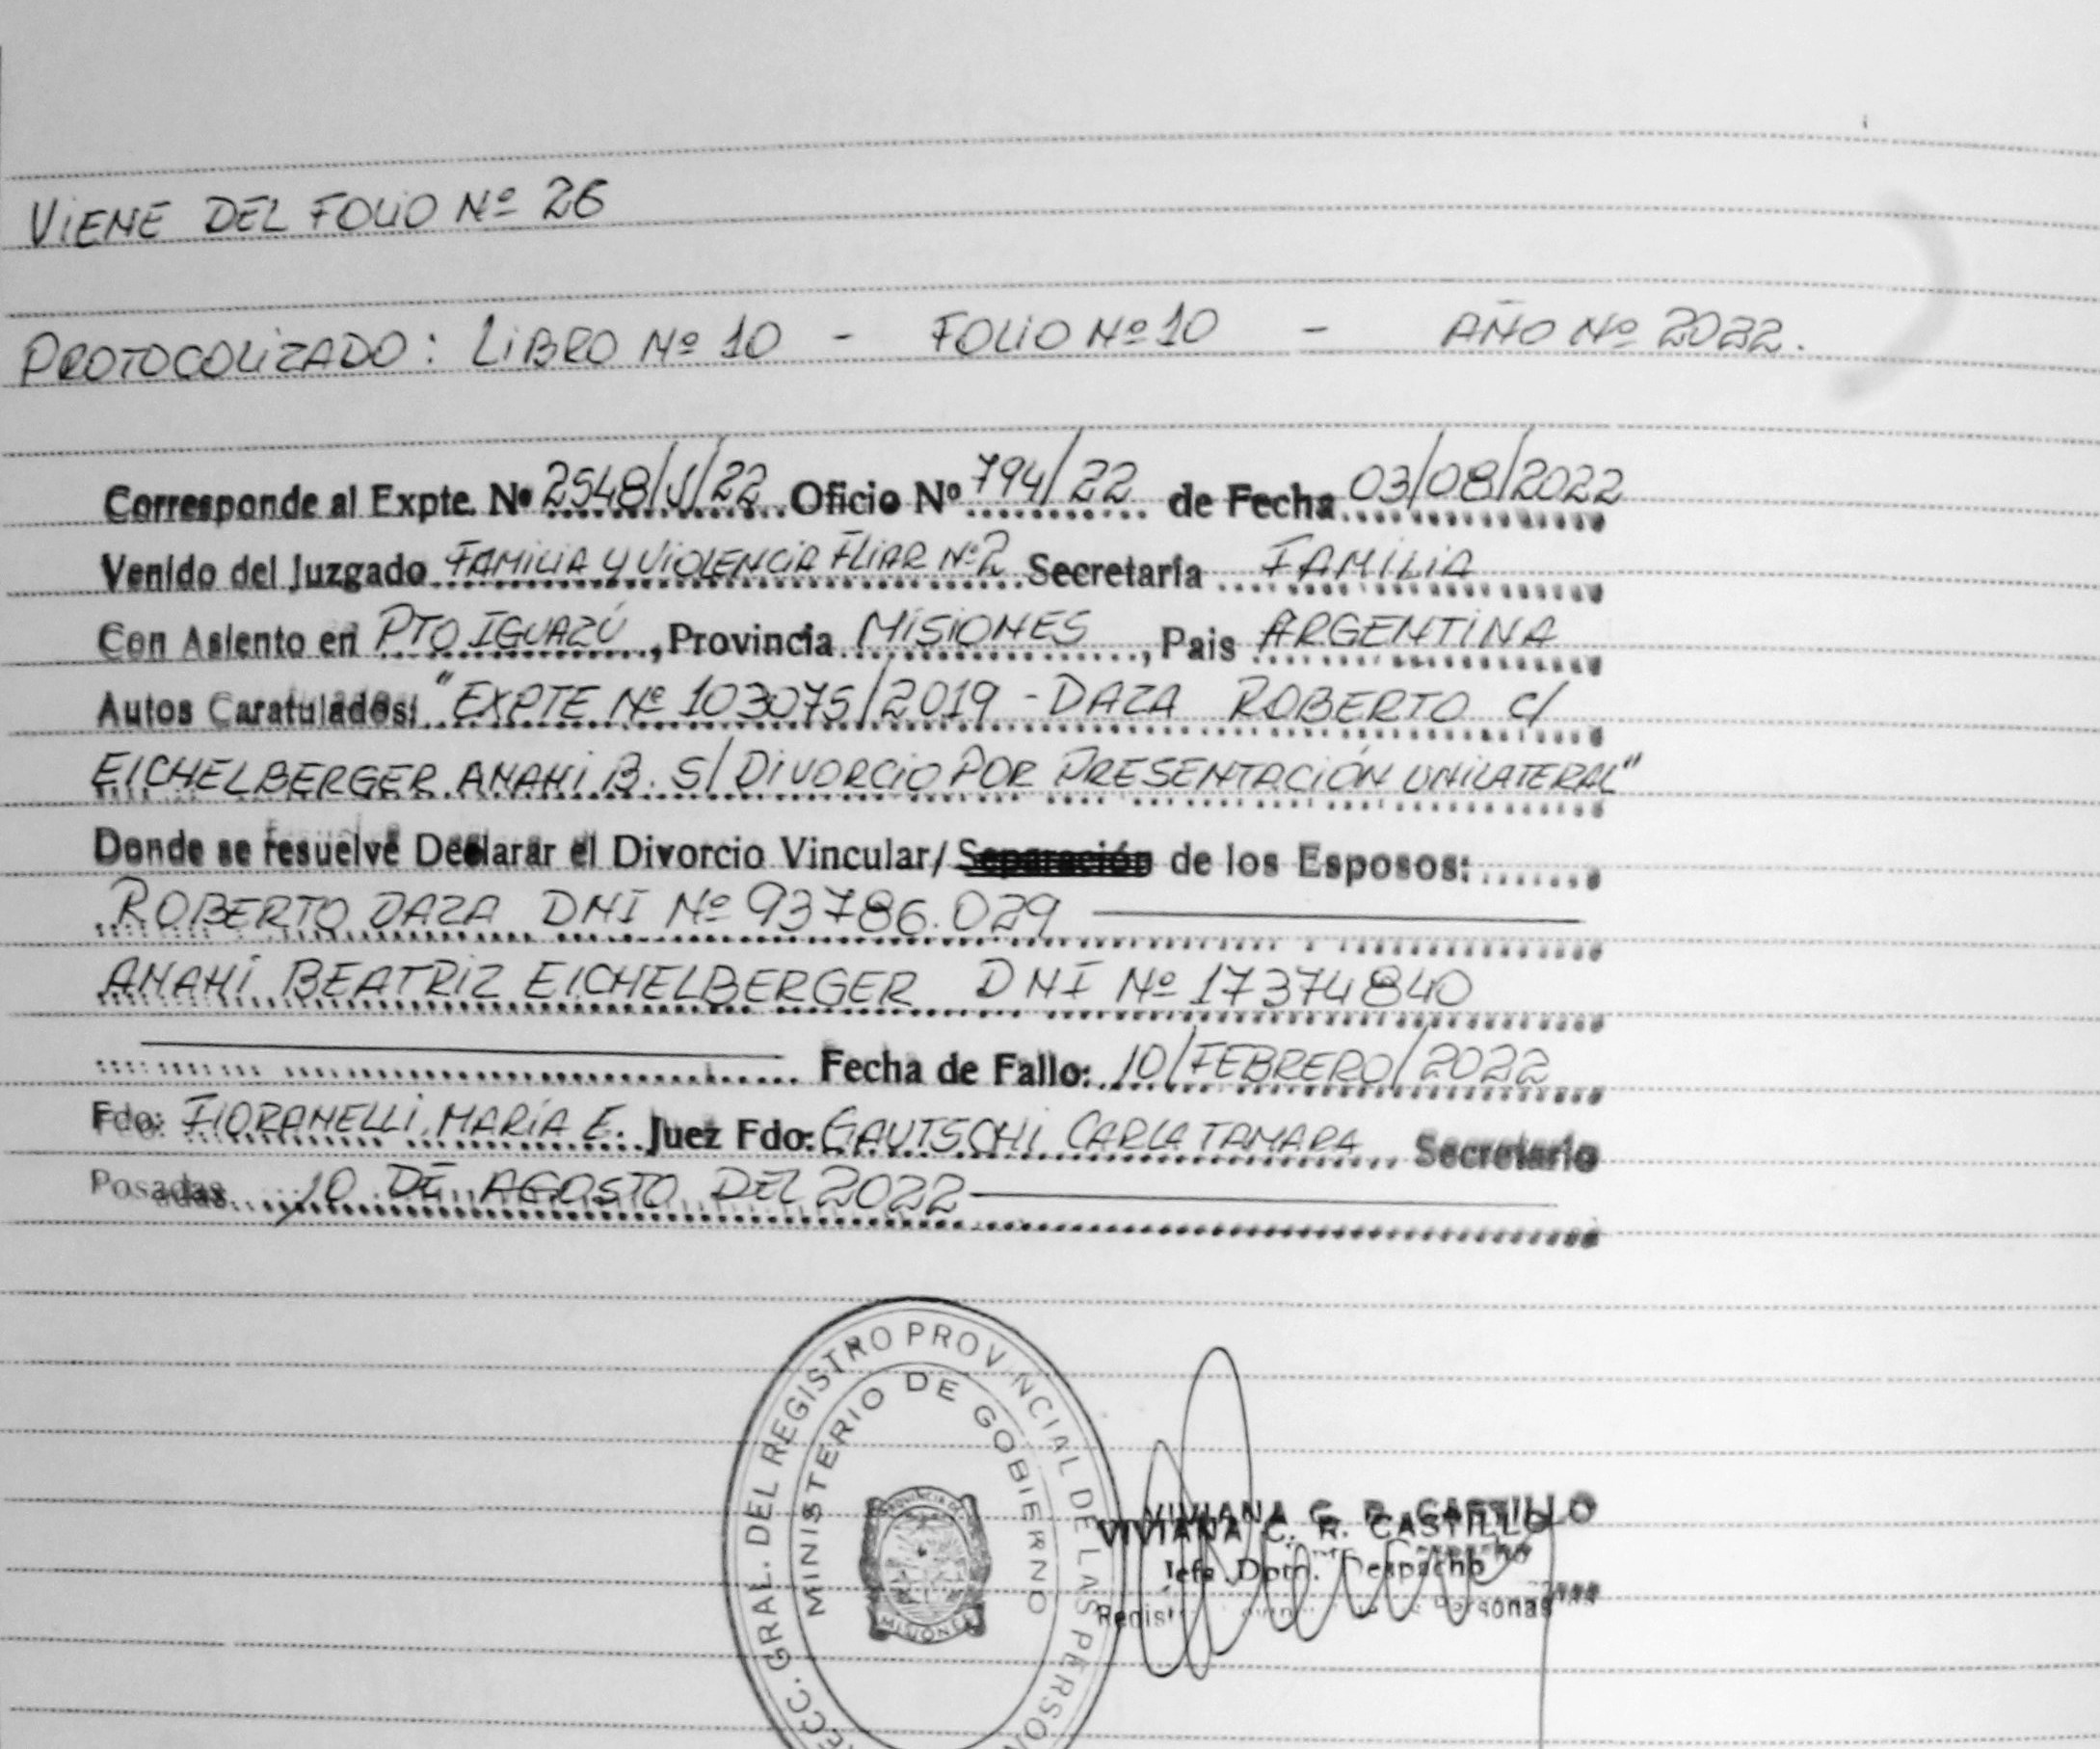 VIENE DEL FOLIO Nº 26
PROTOCOLIZADO: LIBRO Nº 10 - FOLIO Nº 10 - AÑO Nº 2022.
Corresponde al Expte. Nº 2548/J/22 Oficio Nº 794/22 de Fecha 03/08/2022
Venido del Juzgado FAMILIA Y VIOLENCIA FLIAR Nº 2 Secretaría FAMILIA
Con Asiento en PTO IGUAZÚ, Provincia MISIONES, Pais ARGENTINA
Autos Caratulados: "EXPTE Nº 103075/2019 - DAZA ROBERTO C/
EICHELBERGER ANAHI B. S/ DIVORCIO POR PRESENTACIÓN UNILATERAL"
Donde se resuelve Declarar el Divorcio Vincular/ Separación de los Esposos:
ROBERTO DAZA DNI Nº 93786.029
ANAHÍ BEATRIZ EICHELBERGER DNI Nº 17374840
Fecha de Fallo: 10/FEBRERO/2022
Fdo: FIORANELLI MARÍA E. Juez Fdo: GAUTSCHI CARLA TAMARA Secretario
Posadas 10 DE AGOSTO DEL 2022
GRAL. DEL REGISTRO PROVINCIAL DE LAS
MINISTERIO DE GOBIERNO
PROVINCIA DE
MISIONES
VIVIANA C. R. CASTILLO
Jefe Dpto. Despacho
Personas